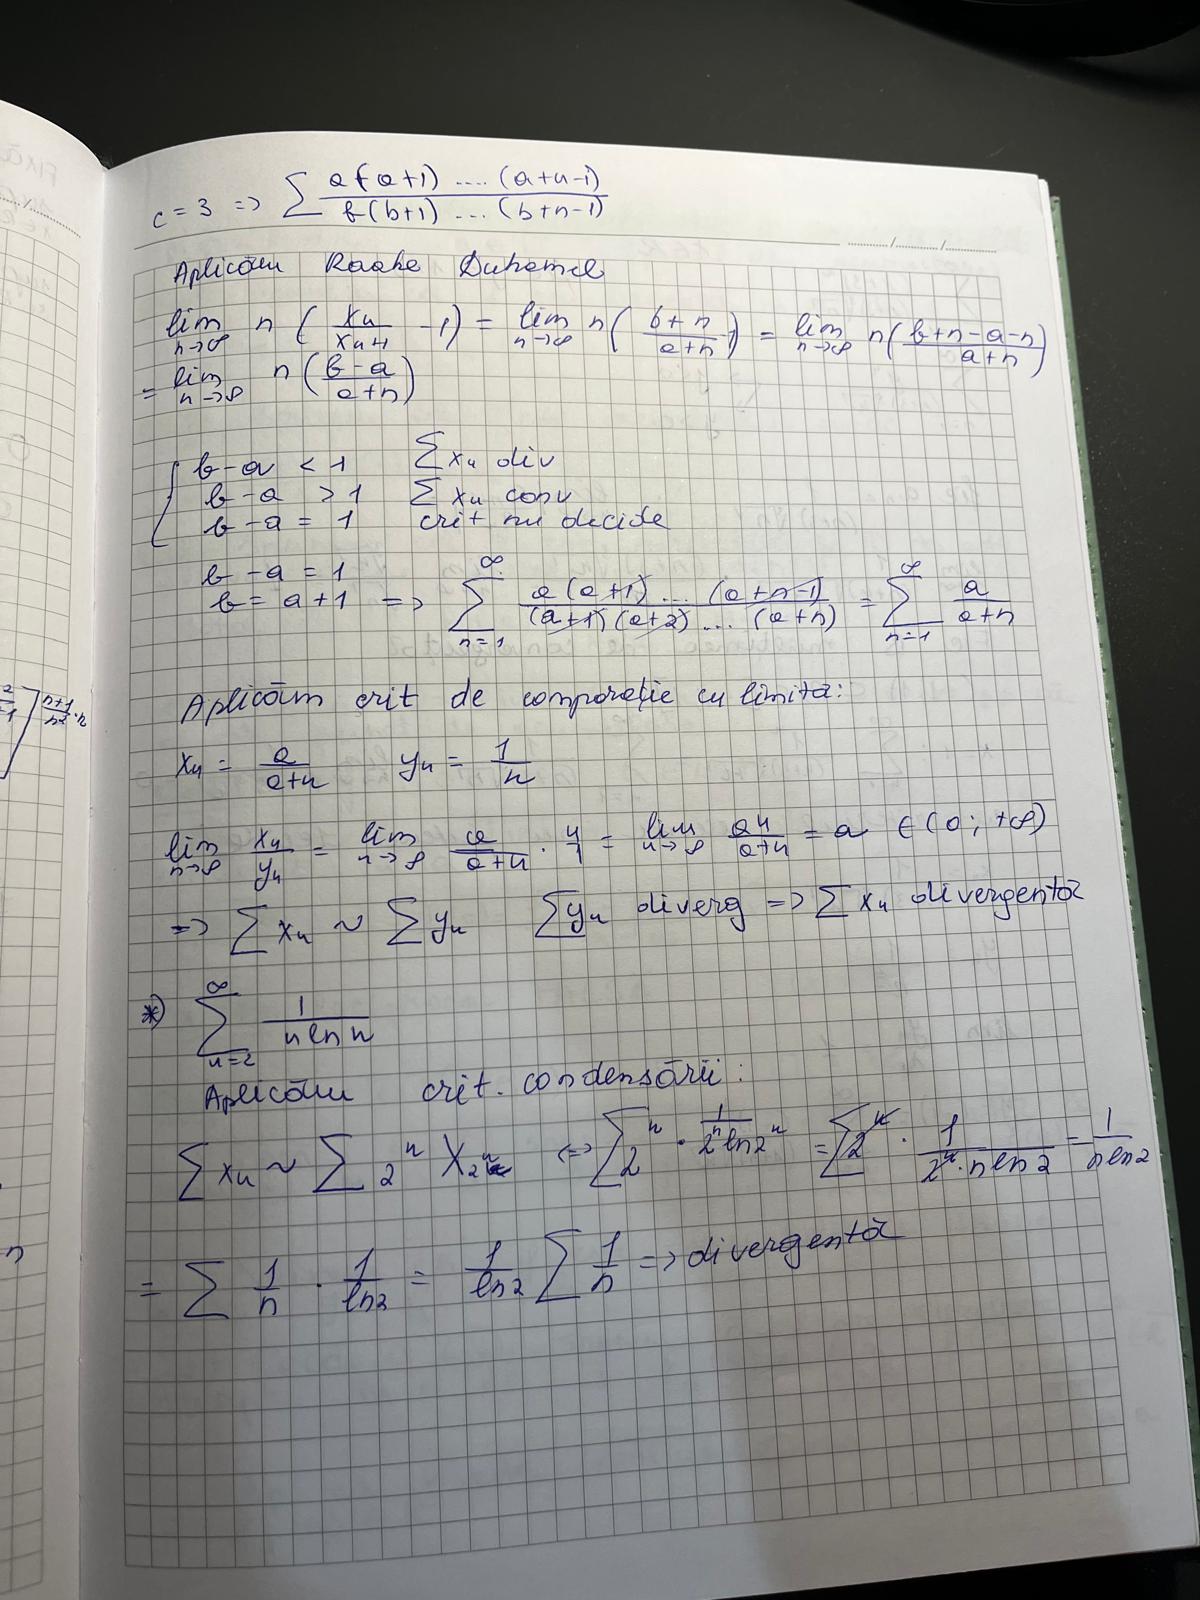 c = 3 => ∑ a(a+1) .... (a+n-1) / b(b+1) ... (b+n-1)
Aplicăm Raabe Duhamel
lim n→∞ n ( xn / xn+1 - 1 ) = lim n→∞ n ( b+n / a+n - 1 ) = lim n→∞ n ( b+n-a-n / a+n )
= lim n→∞ n ( b-a / a+n )
{ b-a < 1 ∑ xn div
b-a > 1 ∑ xn conv
b-a = 1 crit nu decide
b-a = 1
b = a+1 => ∑ n=1 ∞ a(a+1) ... (a+n-1) / (a+1)(a+2) ... (a+n) = ∑ n=1 ∞ a / a+n
Aplicăm crit de comparație cu limită:
xn = a / a+n yn = 1 / n
lim n→∞ xn / yn = lim n→∞ a / a+n · n / 1 = lim n→∞ an / a+n = a ∈ (0; +∞)
=> ∑ xn ~ ∑ yn ∑ yn diverg => ∑ xn divergentă
*) ∑ n=2 ∞ 1 / n ln n
Aplicăm crit. condensării:
∑ xn ~ ∑ 2^n X2^n <=> ∑ 2^n · 1 / 2^n ln 2^n = ∑ 2^n · 1 / 2^n · n ln 2 = 1 / n ln 2
= ∑ 1 / n · 1 / ln 2 = 1 / ln 2 ∑ 1 / n => divergentă
n+1 / n² · n